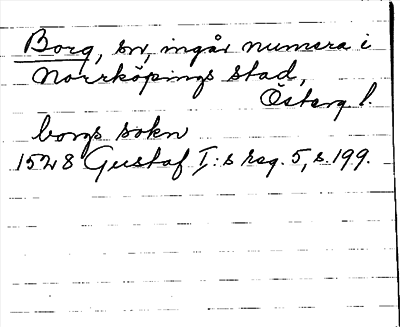 Borg, sn, ingår numera i
Norrköpings stad,
Österg l.
borgs sokn
1528 Gustaf I:s reg. 5, s. 199.